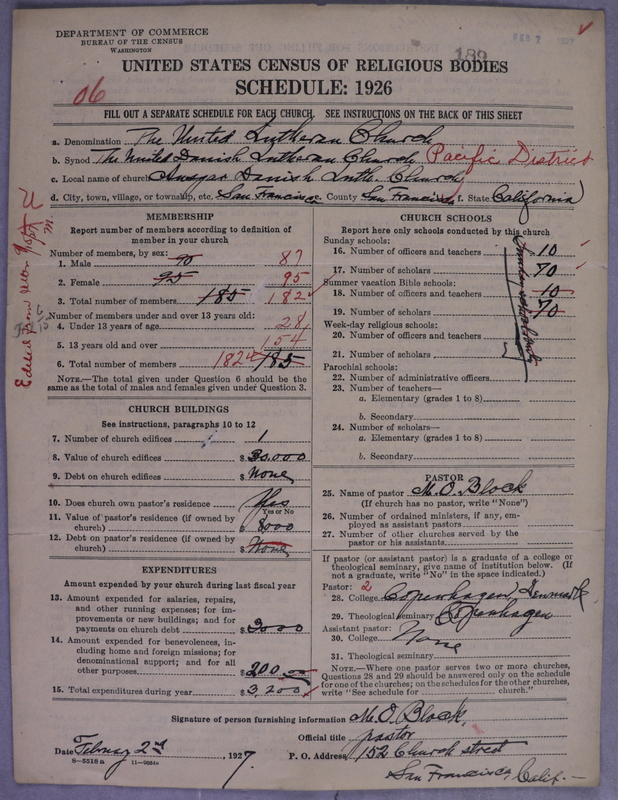 DEPARTMENT OF COMMERCE
BUREAU OF THE CENSUS
WASHINGTON
FEB 7 1927
189
UNITED STATES CENSUS OF RELIGIOUS BODIES
SCHEDULE: 1926
06
FILL OUT A SEPARATE SCHEDULE FOR EACH CHURCH. SEE INSTRUCTIONS ON THE BACK OF THIS SHEET
a. Denomination The United Lutheran Church
b. Synod The United Danish Lutheran Church Pacific District
c. Local name of church Ansgar Danish Luth. Church
d. City, town, village, or township, etc. San Francisco County San Francisco f. State California
MEMBERSHIP
Report number of members according to definition of
member in your church
Number of members, by sex:
1. Male 90 87
2. Female 95 95
3. Total number of members 185 182
Number of members under and over 13 years old:
4. Under 13 years of age 28
5. 13 years old and over 154
6. Total number of members 182 185
NOTE.—The total given under Question 6 should be
the same as the total of males and females given under Question 3.
CHURCH BUILDINGS
See instructions, paragraphs 10 to 12
7. Number of church edifices 1
8. Value of church edifices $ 30.000
9. Debt on church edifices $ None
10. Does church own pastor's residence Yes
Yes or No
11. Value of pastor's residence (if owned by
church) $ 8000
12. Debt on pastor's residence (if owned by
church) $ None
EXPENDITURES
Amount expended by your church during last fiscal year
13. Amount expended for salaries, repairs,
and other running expenses; for im-
provements or new buildings; and for
payments on church debt $ 3000
14. Amount expended for benevolences, in-
cluding home and foreign missions; for
denominational support; and for all
other purposes $ 200.00
15. Total expenditures during year $ 3,200
CHURCH SCHOOLS
Report here only schools conducted by this church
Sunday schools:
16. Number of officers and teachers 10
17. Number of scholars 70
Summer vacation Bible schools:
18. Number of officers and teachers 10
19. Number of scholars 70
Week-day religious schools:
20. Number of officers and teachers
21. Number of scholars
Parochial schools:
22. Number of administrative officers
23. Number of teachers—
a. Elementary (grades 1 to 8)
b. Secondary
24. Number of scholars—
a. Elementary (grades 1 to 8)
b. Secondary
PASTOR
25. Name of pastor M. O. Block
(If church has no pastor, write "None")
26. Number of ordained ministers, if any, em-
ployed as assistant pastors
27. Number of other churches served by the
pastor or his assistants
If pastor (or assistant pastor) is a graduate of a college or
theological seminary, give name of institution below. (If
not a graduate, write "No" in the space indicated.)
Pastor: 2
28. College Copenhagen, Denmark
29. Theological seminary Copenhagen
Assistant pastor:
30. College None
31. Theological seminary
NOTE.—Where one pastor serves two or more churches,
Questions 28 and 29 should be answered only on the schedule
for one of the churches; on the schedules for the other churches,
write "See schedule for church."
Signature of person furnishing information M. O. Block,
Official title pastor
Date February 2nd, 1927. P. O. Address 152 Church street
San Francisco, Calif.
8—5518a 11—9884